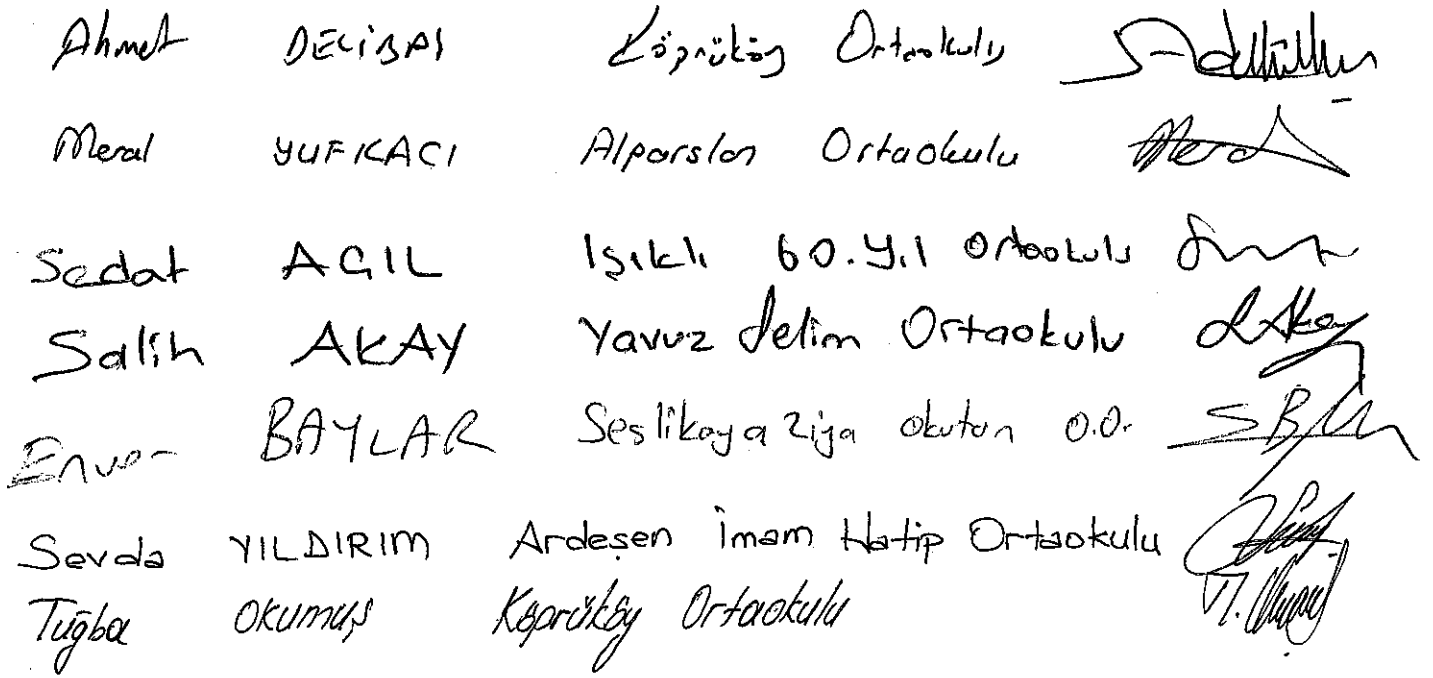 Ahmet DELİBAŞ Köprüköy Ortaokulu
Meral YUFKACI Alparslan Ortaokulu Meral
Sedat AGIL Işıklı 60.Yıl Ortaokulu
Salih AKAY Yavuz Selim Ortaokulu S.Akay
Enver BAYLAR Seslikaya Ziya okutan O.O.
Sevda YILDIRIM Ardeşen İmam Hatip Ortaokulu
Tuğba OKUMUŞ Köprüköy Ortaokulu